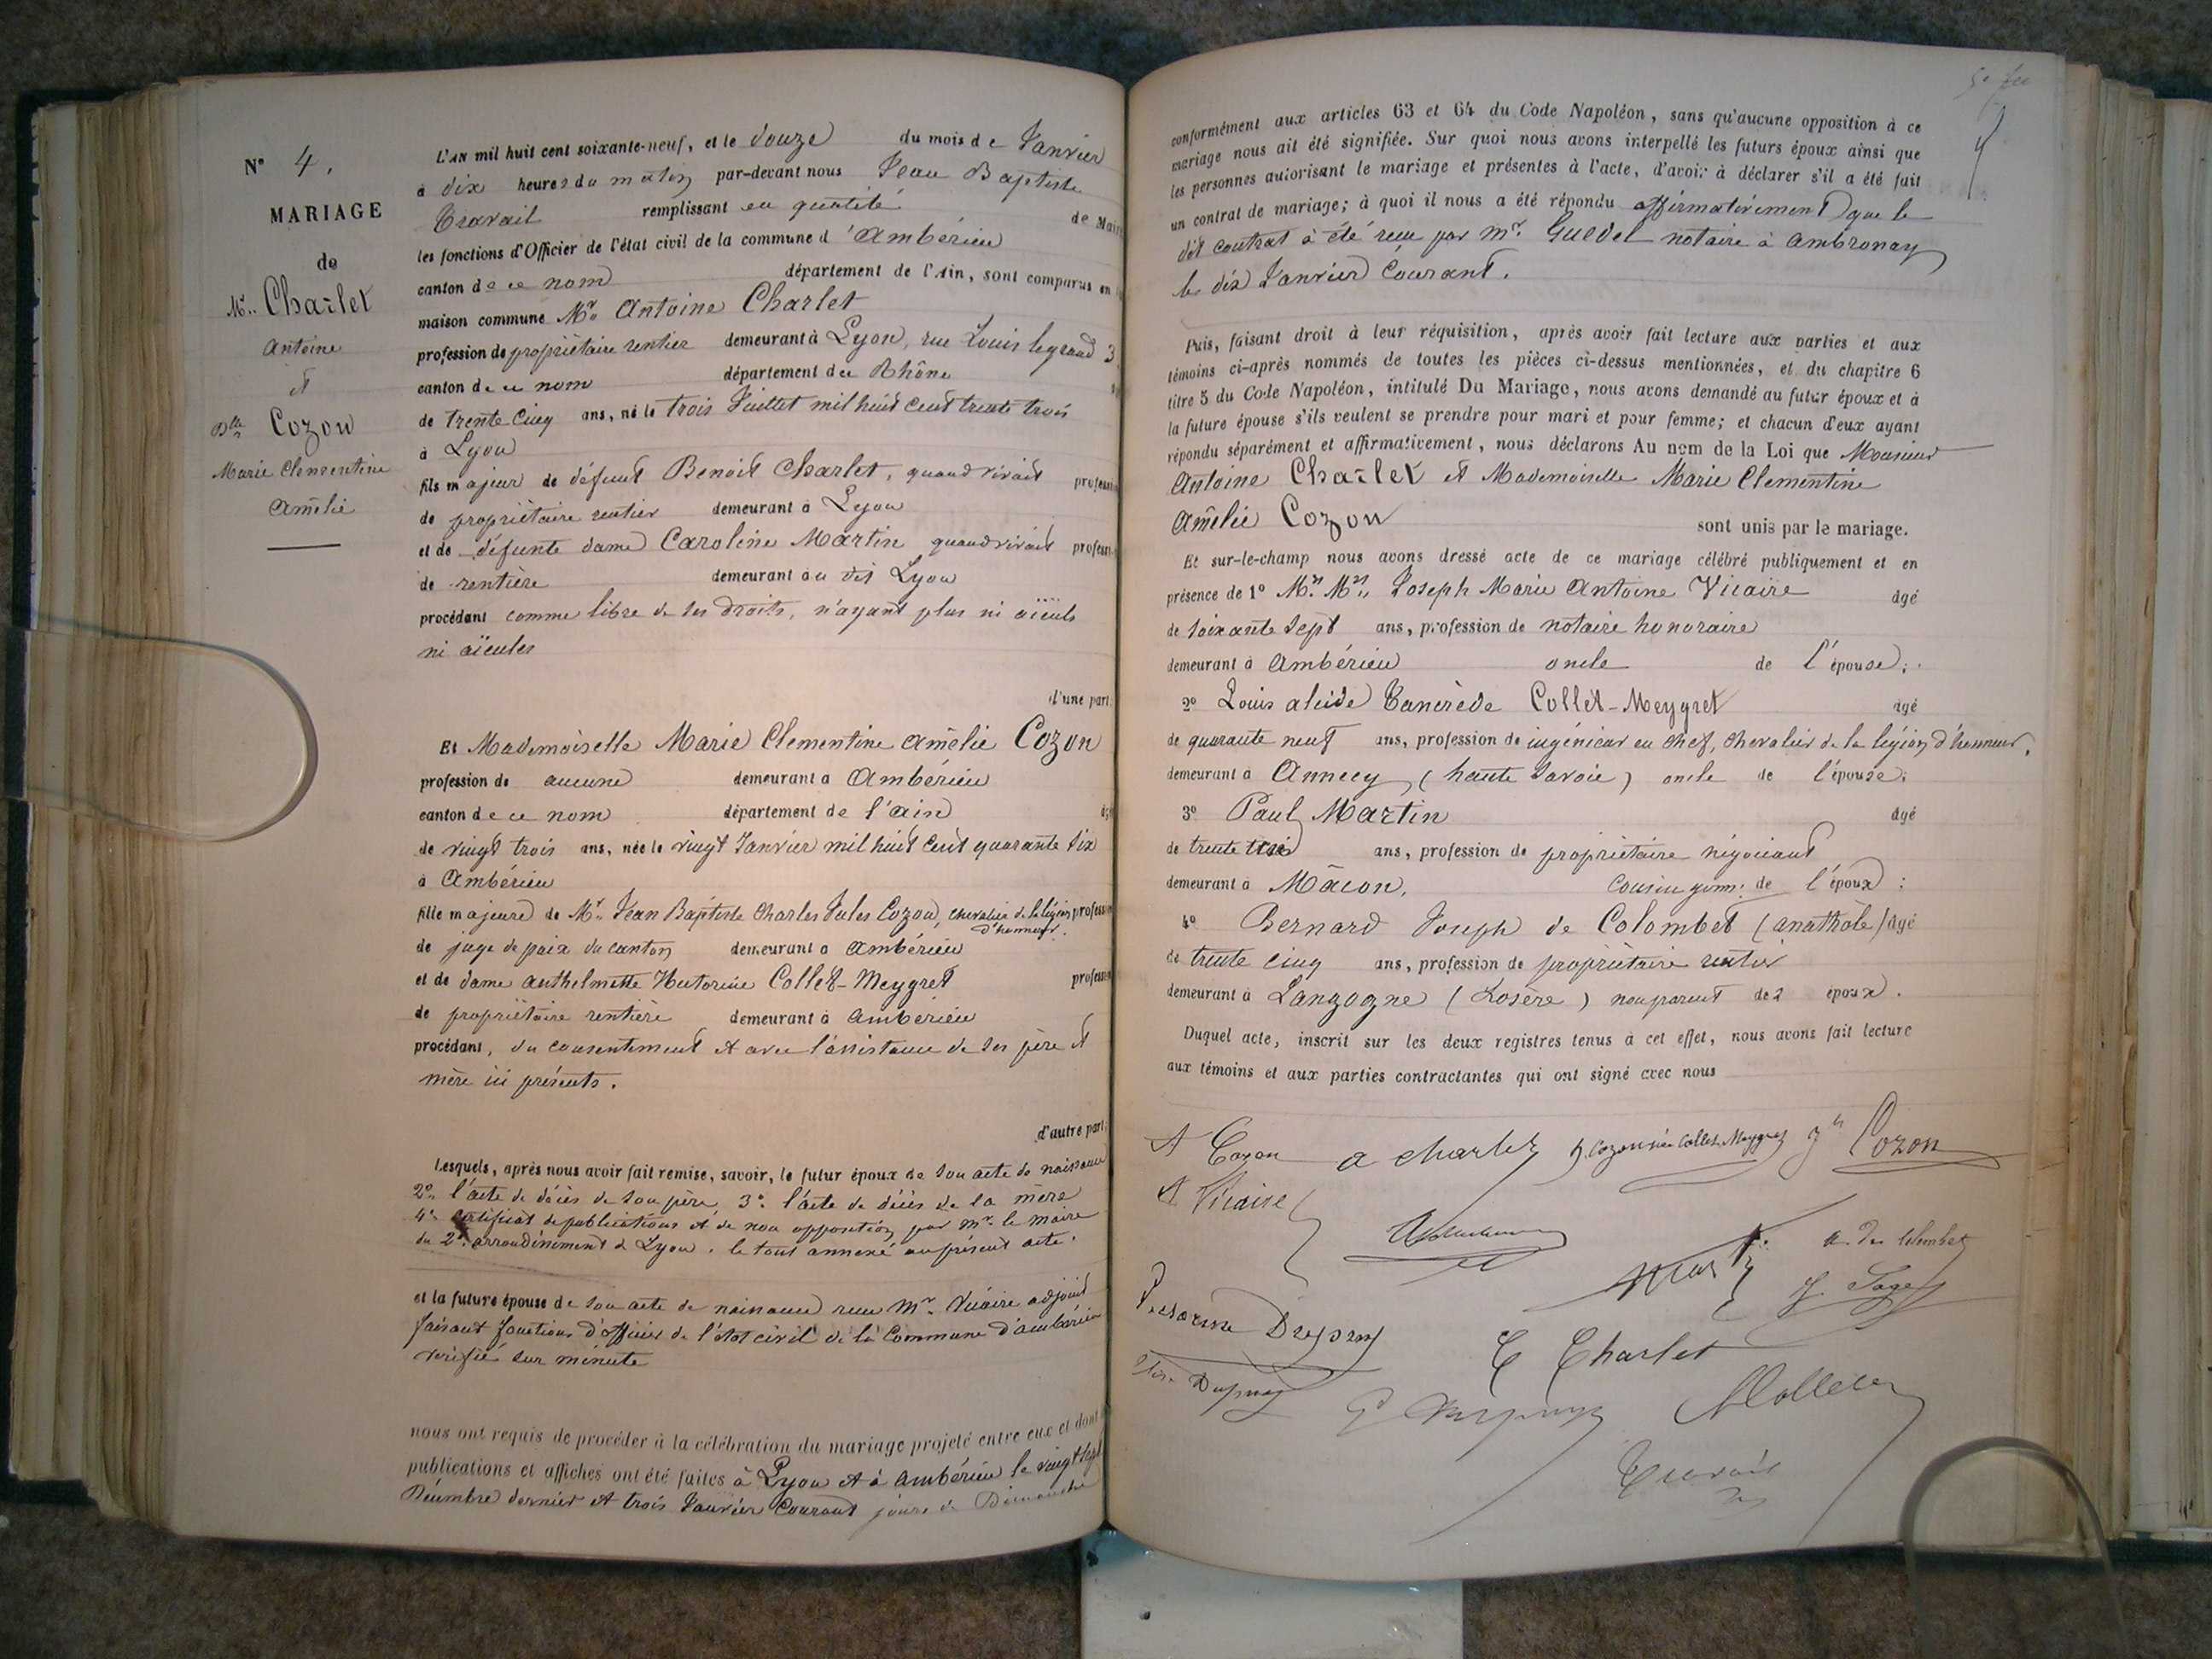 N° 4.
MARIAGE
de
Mr. Charlet
Antoine
et
Dlle Cozon
Marie Clementine
Amélie
L'AN mil huit cent soixante-neuf, et le douze du mois de Janvier
à dix heures du matin par-devant nous Jean Baptiste
Travail remplissant en qualité de Maire
les fonctions d'Officier de l'état civil de la commune d'Ambérieu
canton de ce nom département de l'Ain, sont comparus en
maison commune Mr. Antoine Charlet
profession de propriétaire rentier demeurant à Lyon, rue Louis legrand 3
canton de ce nom département du Rhône
de trente cinq ans, né le trois Juillet mil huit cent trente trois
à Lyon
fils majeur de défunt Benoit Charlet, quand vivait profession
de propriétaire rentier demeurant à Lyon
et de défunte dame Caroline Martin quand vivait profession
de rentière demeurant au dit Lyon
procédant comme libre de ses droits, n'ayant plus ni aïeuls
ni aïeules
d'une part.
Et Mademoiselle Marie Clementine Amélie Cozon
profession de aucune demeurant à Ambérieu
canton de ce nom département de l'ain
de vingt trois ans, née le vingt Janvier mil huit cent quarante six
à Ambérieu
fille majeure de Mr. Jean Baptiste Charles Jules Cozon, chevalier de la légion profession
d'honneur.
de juge de paix du canton demeurant à Ambérieu
et de dame Anthelmette Collet-Meygret profession
de propriétaire rentière demeurant à Ambérieu
procédant, du consentement et avec l'assistance de ses père et
mère ici présents.
d'autre part.
Lesquels, après nous avoir fait remise, savoir, le futur époux de son acte de naissance
2° l'acte de décès de son père, 3° l'acte de décès de la mère
4° certificat de publications et de non opposition par mr. le maire
du 2e. arrondissement de Lyon. le tout annexé au présent acte.
et la future épouse de son acte de naissance reçu Mr. Vicaire adjoint
faisant fonctions d'officier de l'état civil de la Commune d'ambérieu
verifié sur minute
nous ont requis de procéder à la célébration du mariage projeté entre eux et dont
publications et affiches ont été faites à Lyon et à Ambérieu le vingt sept
Décembre dernier et trois Janvier Courant jours de Dimanche
conformément aux articles 63 et 64 du Code Napoléon, sans qu'aucune opposition à ce
mariage nous ait été signifiée. Sur quoi nous avons interpellé les futurs époux ainsi que
les personnes autorisant le mariage et présentes à l'acte, d'avoir à déclarer s'il a été fait
un contrat de mariage; à quoi il nous a été répondu affirmativement que le
dit contrat à été reçu par mr. Guedel notaire à Ambronay
le dix Janvier Courant.
Puis, faisant droit à leur réquisition, après avoir fait lecture aux parties et aux
témoins ci-après nommés de toutes les pièces ci-dessus mentionnées, et du chapitre 6
titre 5 du Code Napoléon, intitulé Du Mariage, nous avons demandé au futur époux et à
la future épouse s'ils veulent se prendre pour mari et pour femme; et chacun d'eux ayant
répondu séparément et affirmativement, nous déclarons Au nom de la Loi que Monsieur
Antoine Charlet et Mademoiselle Marie Clementine
Amélie Cozon sont unis par le mariage.
Et sur-le-champ nous avons dressé acte de ce mariage célébré publiquement et en
présence de 1° Mr. Joseph Marie Antoine Vicaire âgé
de soixante sept ans, profession de notaire honoraire
demeurant à Ambérieu oncle de l'épouse;
2° Louis alcide Tancrède Collet-Meygret âgé
de quarante neuf ans, profession de ingénieur en chef, chevalier de la légion d'honneur,
demeurant à Annecy (haute Savoie) oncle de l'épouse;
3° Paul Martin âgé
de trente trois ans, profession de propriétaire négociant
demeurant à Mâcon, cousin germ: de l'époux:
4° Bernard Joseph de Colombet (anathole) âgé
de trente cinq ans, profession de propriétaire rentier
demeurant à Langogne (Losère) non parent des époux.
Duquel acte, inscrit sur les deux registres tenus à cet effet, nous avons fait lecture
aux témoins et aux parties contractantes qui ont signé avec nous
A Cozon a charlet Cozon née Collet-Meygret Cozon
A Vicaire
Dupuy
E Charlet
Dupuy
Travail